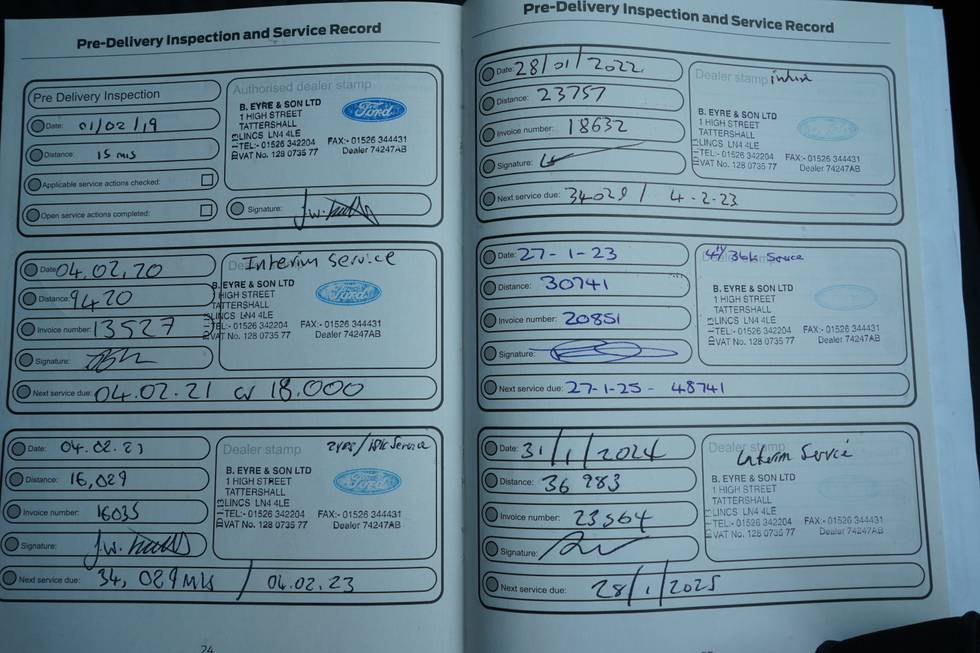 Pre-Delivery Inspection and Service Record
Pre Delivery Inspection
Date: 01/02/19
Distance: 15 mls
Applicable service actions checked:
Open service actions completed:
Authorised dealer stamp
B. EYRE & SON LTD
1 HIGH STREET
TATTERSHALL
LINCS LN4 4LE
TEL:- 01526 342204 FAX:- 01526 344431
VAT No. 128 0735 77 Dealer 74247AB
Ford
Signature:
Date: 04.02.20
Distance: 9420
Invoice number: 13527
Signature:
Next service due: 04.02.21 or 18,000
Dealer stamp
Interim Service
B. EYRE & SON LTD
1 HIGH STREET
TATTERSHALL
LINCS LN4 4LE
TEL:- 01526 342204 FAX:- 01526 344431
VAT No. 128 0735 77 Dealer 74247AB
Ford
Date: 04.02.21
Distance: 16,029
Invoice number: 16035
Signature:
Next service due: 34,029 mls / 04.02.23
Dealer stamp 2yrs/18k Service
B. EYRE & SON LTD
1 HIGH STREET
TATTERSHALL
LINCS LN4 4LE
TEL:- 01526 342204 FAX:- 01526 344431
VAT No. 128 0735 77 Dealer 74247AB
Ford
24
Pre-Delivery Inspection and Service Record
Date: 28/01/2022
Distance: 23757
Invoice number: 18632
Signature:
Next service due: 34029 / 4-2-23
Dealer stamp
B. EYRE & SON LTD
1 HIGH STREET
TATTERSHALL
LINCS LN4 4LE
TEL:- 01526 342204 FAX:- 01526 344431
VAT No. 128 0735 77 Dealer 74247AB
Ford
Date: 27-1-23
Distance: 30741
Invoice number: 20851
Signature:
Next service due: 27-1-25 - 48741
Dealer stamp
4yr/36k Service
B. EYRE & SON LTD
1 HIGH STREET
TATTERSHALL
LINCS LN4 4LE
TEL:- 01526 342204 FAX:- 01526 344431
VAT No. 128 0735 77 Dealer 74247AB
Date: 31/1/2024
Distance: 36 983
Invoice number: 23564
Signature:
Next service due: 28/1/2025
Dealer stamp
Interim Service
B. EYRE & SON LTD
1 HIGH STREET
TATTERSHALL
LINCS LN4 4LE
TEL:- 01526 342204 FAX:- 01526 344431
VAT No. 128 0735 77 Dealer 74247AB